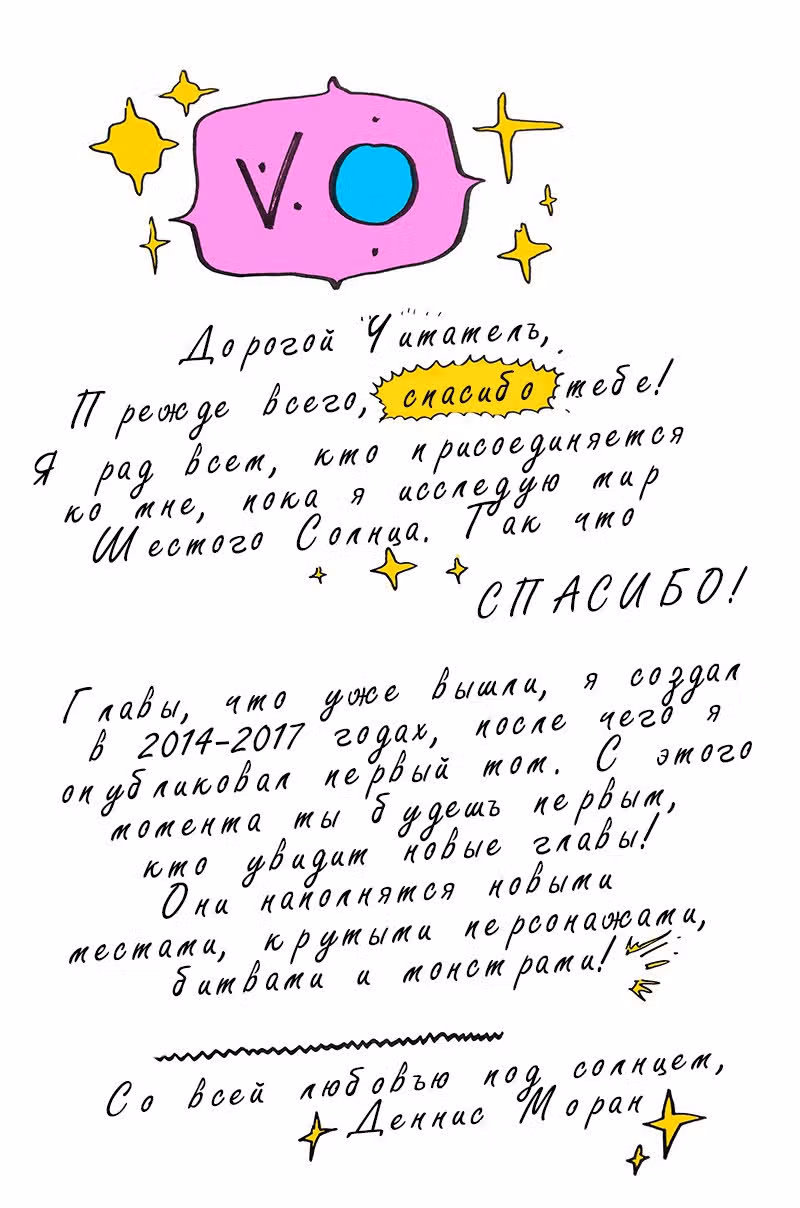 VO
Дорогой Читатель,
Прежде всего, спасибо тебе!
Я рад всем, кто присоединяется
ко мне, пока я исследую мир
Шестого Солнца. Так что
СПАСИБО!
Главы, что уже вышли, я создал
в 2014-2017 годах, после чего я
опубликовал первый том. С этого
момента ты будешь первым,
кто увидит новые главы!
Они наполнятся новыми
местами, крутыми персонажами,
битвами и монстрами!
Со всей любовью под солнцем,
Деннис Моран